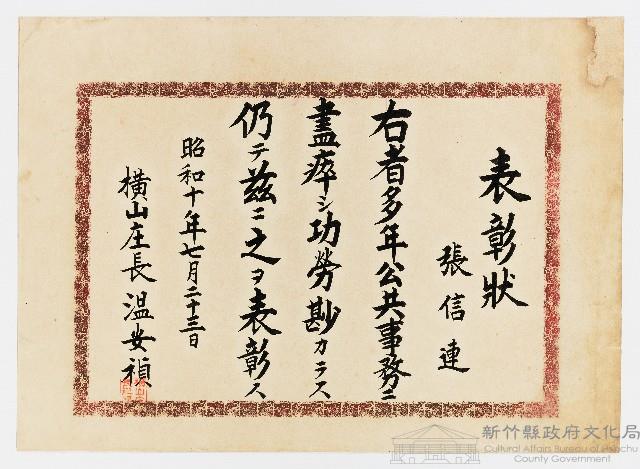 表彰狀
張信連
右者多年公共事務ニ
盡瘁シ功勞尠カラス
仍テ茲ニ之ヲ表彰ス
昭和十年七月二十三日
橫山庄長 溫安禎
新竹縣政府文化局
Cultural Affairs Bureau of Hsinchu
County Government